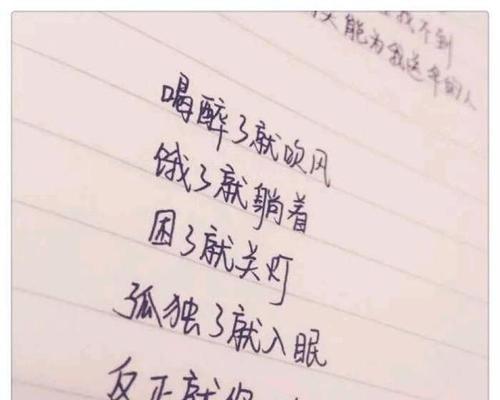 我不到
能为我送伞的人
喝醉了就吹风
饿了就躺着
困了就关灯
孤独了就入眠
反正就你